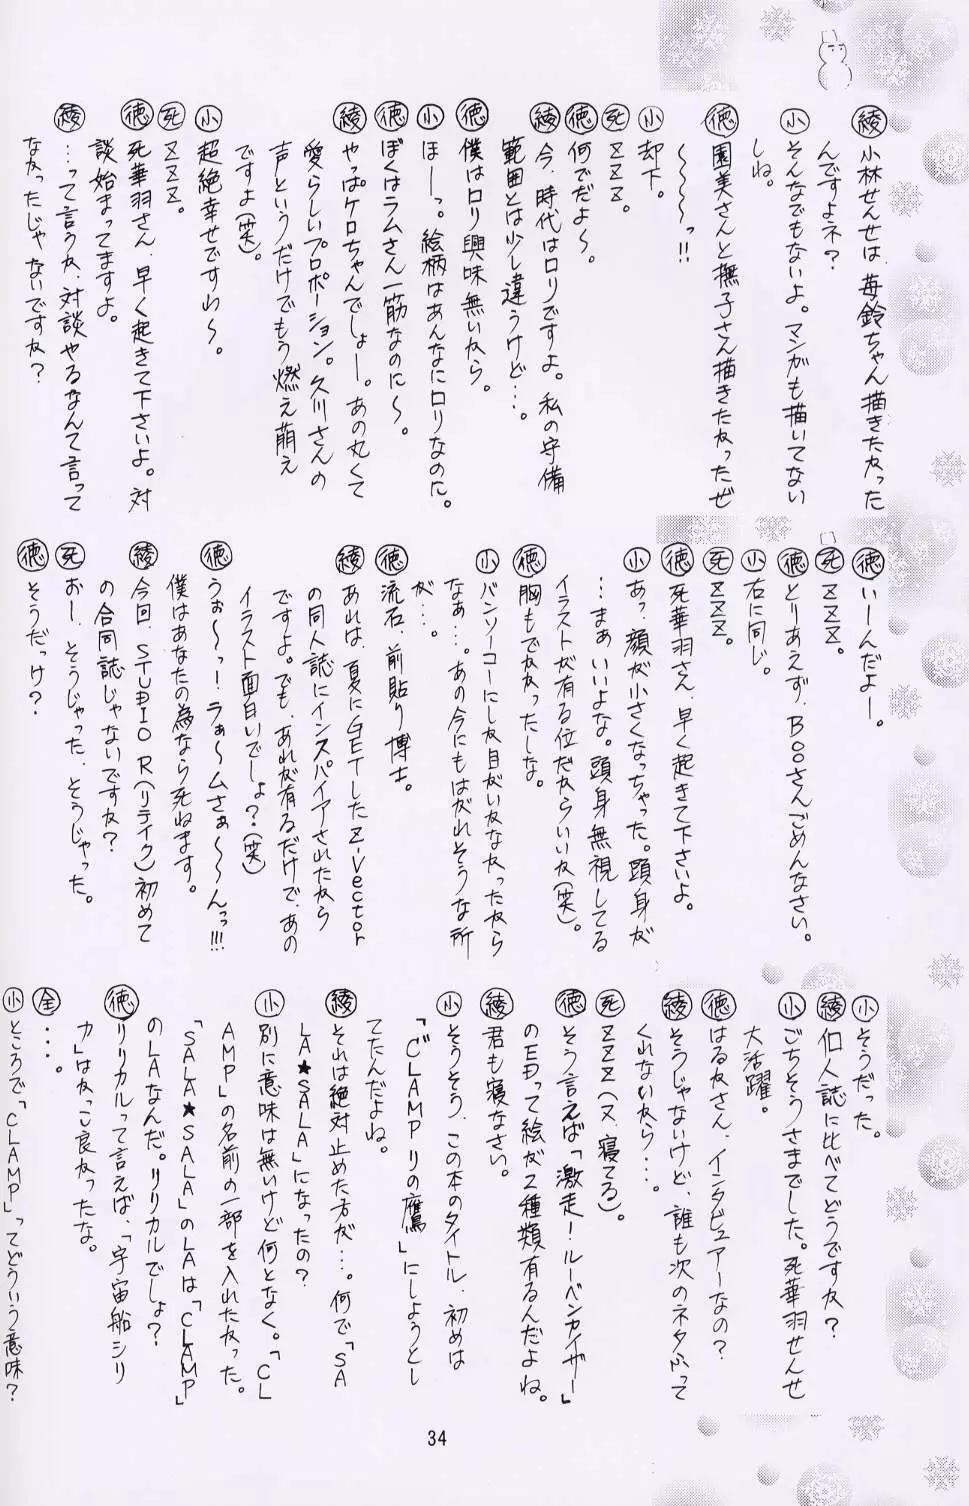 綾 小林せんせは、苺鈴ちゃん描きたかった
んですよネ?
小 そんなでもないよ。マンガも描いてない
しね。
徳 園美さんと撫子さん描きたかったぜ
〜〜〜〜っ!!
小 却下。
死 ZZZ。
徳 何でだよ〜。
綾 今、時代はロリですよ。私の守備
範囲とは少し違うけど…。
徳 僕はロリ興味無いから。
小 ほーっ。絵柄はあんなにロリなのに。
徳 ぼくはラムさん一筋なのに〜。
綾 やっぱケロちゃんでしょー。あの丸くて
愛らしいプロポーション。久川さんの
声というだけでもう燃え萌え
ですよ(笑)。
小 超絶幸せですわ〜。
死 ZZZ。
徳 死華羽さん、早く起きて下さいよ。対
談始まってますよ。
綾 …って言うか、対談やるなんて言って
なかったじゃないですか?
徳 いーんだよー。
死 ZZZ。
徳 とりあえず、BOOさんごめんなさい。
小 右に同じ。
死 ZZZ。
徳 死華羽さん、早く起きて下さいよ。
小 あっ、顔が小さくなっちゃった。頭身が
…まぁいいよな。頭身無視してる
イラストが有る位だからいいか(笑)。
徳 胸もでかかったしな。
小 バンソーコーにしか目がいかなかったから
なぁ…。あの今にもはがれそうな所
が…。
徳 流石、前貼り博士。
綾 あれは、夏にGETしたZ-Vector
の同人誌にインスパイアされたから
ですよ。でも、あれが有るだけで、あの
イラスト面白いでしょ?(笑)
徳 うぉ〜っー!ラぁ〜ムさぁ〜〜〜んっ!!!
僕はあなたの為なら死ねます。
綾 今回、STUDIO R(リテイク)初めて
の合同誌じゃないですか?
死 おー、そうじゃった、そうじゃった。
徳 そうだっけ?
小 そうだった。
綾 個人誌に比べてどうですか?
小 ごちそうさまでした。死華羽せんせ
大活躍。
徳 はるかさん、インタビュアーなの?
綾 そうじゃないけど、誰も次のネタふって
くれないから…。
死 ZZZ(又、寝てる)。
徳 そう言えば「激走!ルーベンカイザー」
のEDって絵が2種類有るんだよね。
綾 君も寝なさい。
小 そうそう、この本のタイトル、初めは
「CLAMPりの鷹」にしようとし
てたんだよね。
綾 それは絶対止めた方が…。何で「SA
LA★SALA」になったの?
小 別に意味は無いけど何となく。「CL
AMP」の名前の一部を入れたかった。
「SALA★SALA」のLAは「CLAMP」
のLAなんだ。リリカルでしょ?
徳 リリカルって言えば、「宇宙船シリ
カ」はかっこ良かったな。
全 …。
小 ところで「CLAMP」ってどういう意味?
34